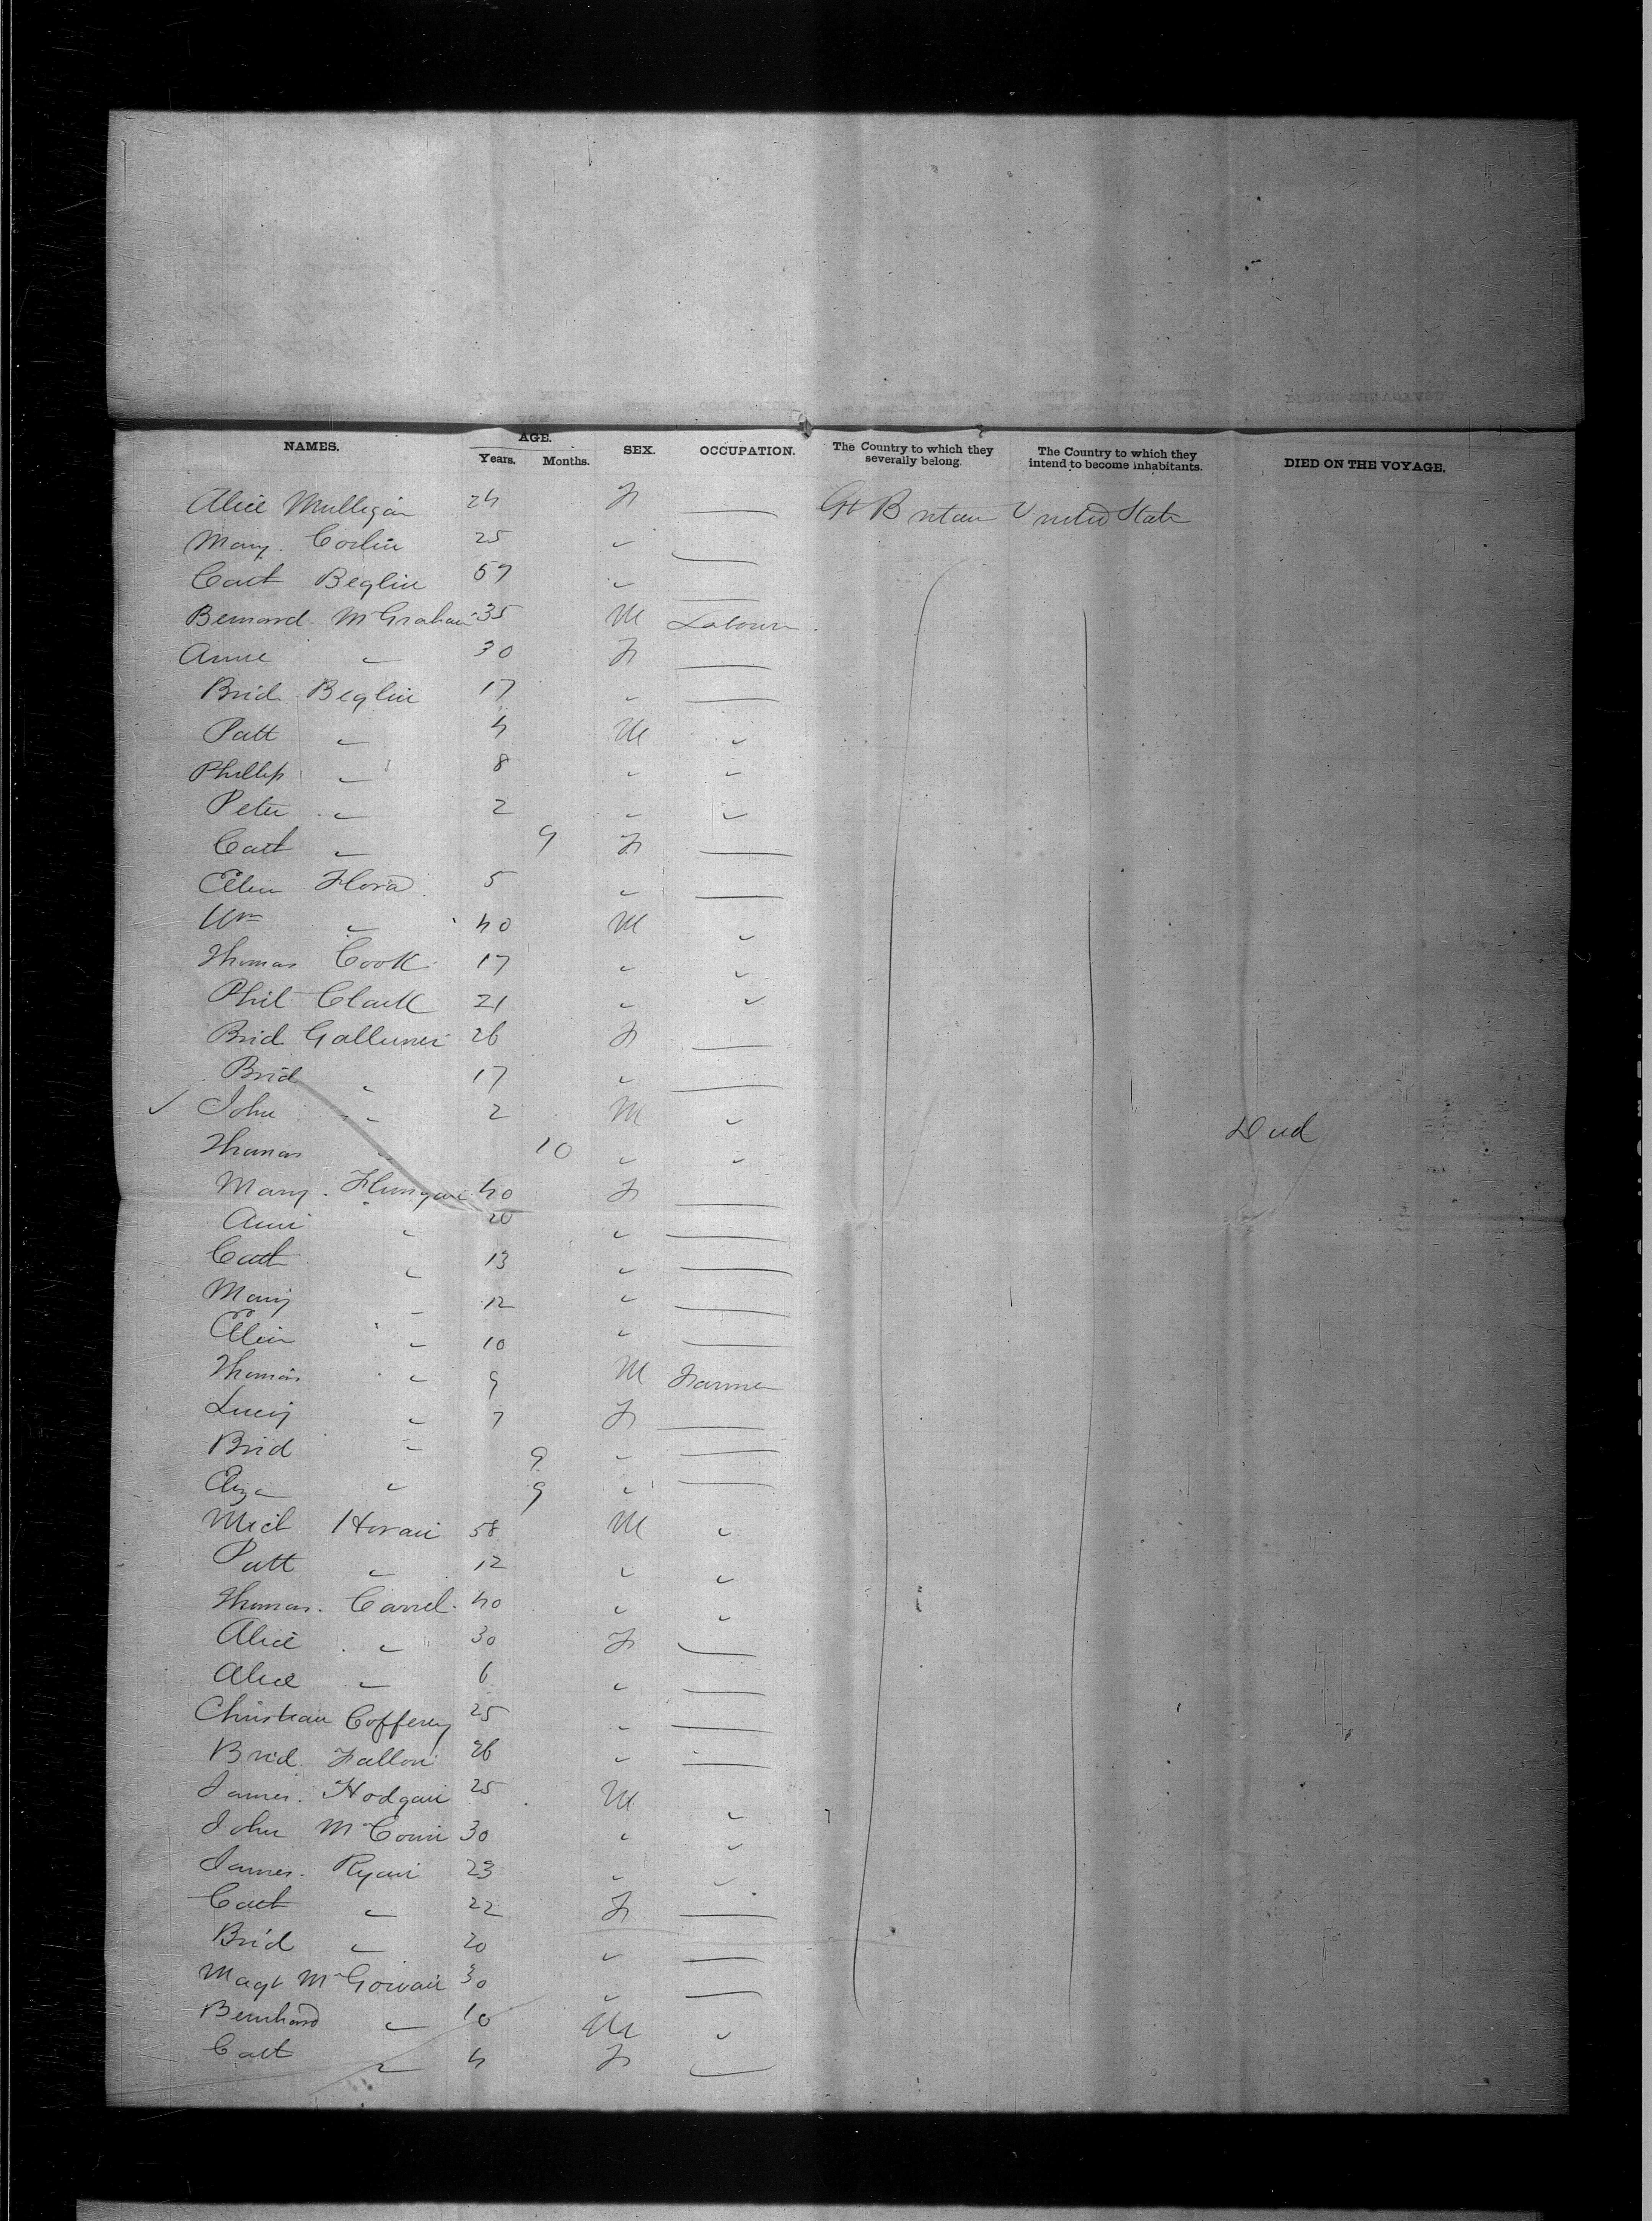 NAMES. AGE. Years. Months. SEX. OCCUPATION. The Country to which they severally belong. The Country to which they intend to become inhabitants. DIED ON THE VOYAGE.
Alice Mulligan 24 F —— Gt Britain United State
Mary Corlin 25 " ——
Cath Beglin 57 " ——
Bernard McGrahan 35 M Labourer
Anne " 30 F ——
Brid Beglin 17 " ——
Patt " 4 M "
Phillip " 8 " "
Peter " 2 " "
Cath " 9 F ——
Ellen Flora 5 " ——
Wm " 40 M "
Thomas Cook 17 " "
Phil Clark 21 " "
Brid 26 F ——
Brid " 17 " ——
✓ John " 2 M " Died
Thomas " 10 " "
Mary 40 F ——
Ann " 20 " ——
Cath " 13 " ——
Mary " 12 " ——
Ellen " 10 " ——
Thomas " 9 M Farmer
Lucy " 7 F ——
Brid " 9 " ——
Eliza " 9 " ——
Mich Horan 58 M "
Patt " 12 " "
Thomas Carrel 40 " "
Alice " 30 F ——
Alice " 6 " ——
Christian Cofferey 25 " ——
Brid Fallon 26 " ——
James Hodgan 25 M "
John McConn 30 " "
James Ryan 23 " "
Cath " 22 F ——
Brid " 20 " ——
Magt McGowan 30 " ——
Bernhard " 10 M "
Cath " 4 F ——